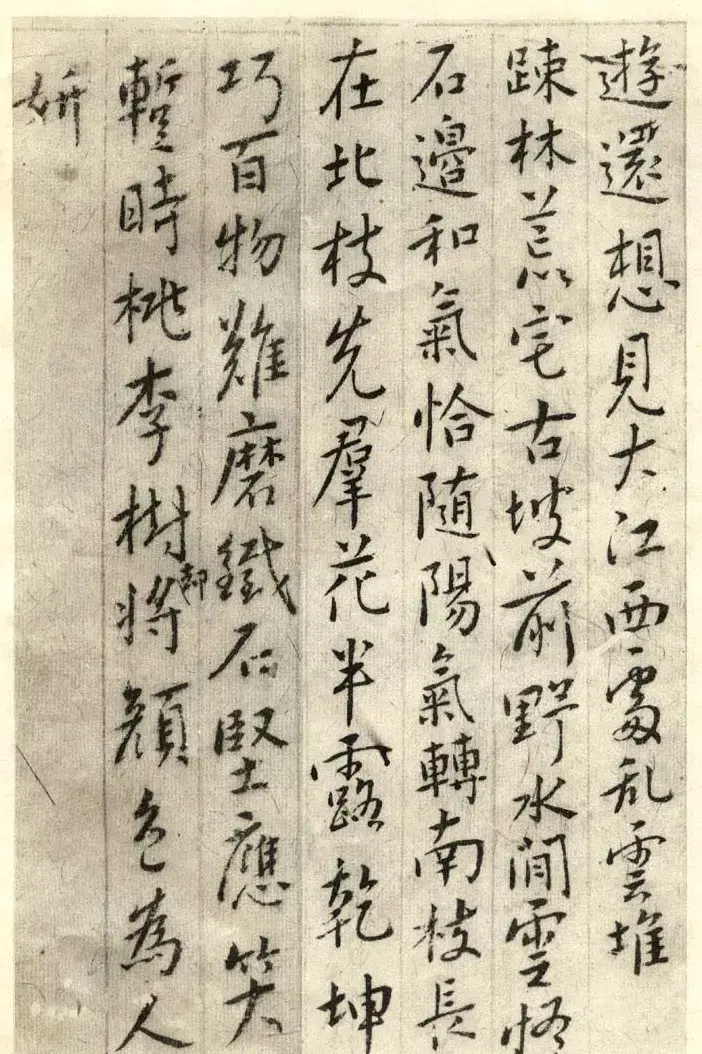 遊還想見大江西處亂雲堆
踈林荒宅古坡前野水閒雲怪
石邊和氣恰隨陽氣轉南枝長
在北枝先羣花半露乾坤
巧百物難磨鐵石堅應笑
暫時桃李樹却將顏色為人
妍